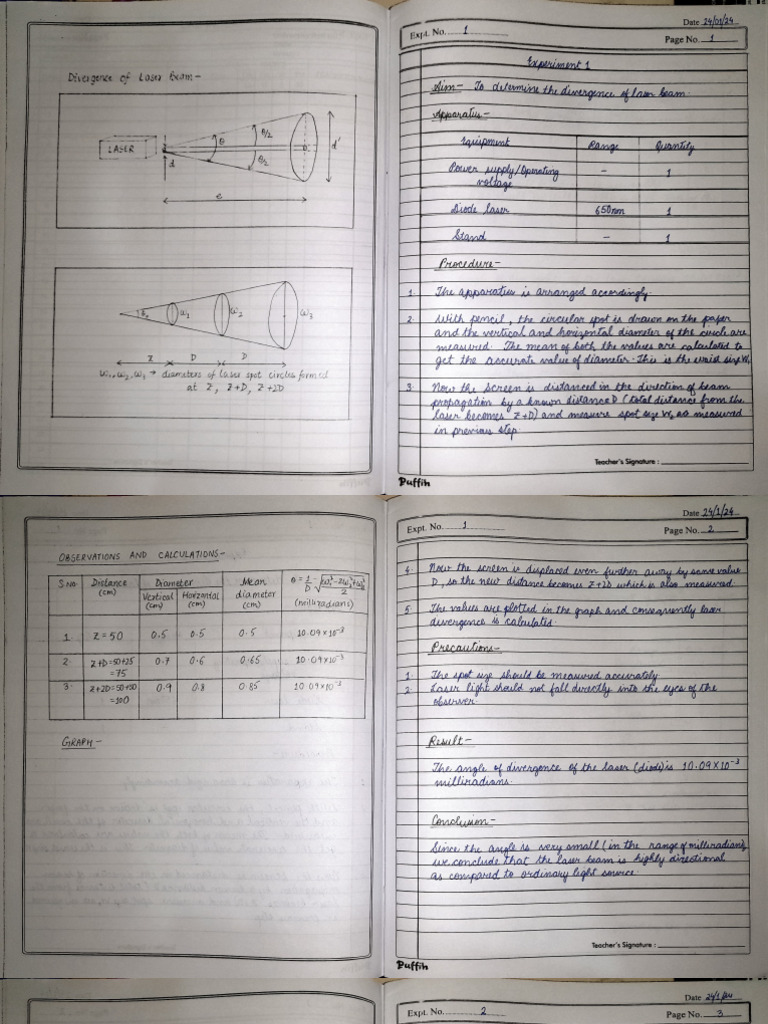 Divergence of Laser Beam-
LASER
d
θ
θ/2
θ/2
D
d'
e
ω₁
ω₂
ω₃
Z
D
D
ω₁, ω₂, ω₃ → diameters of laser spot circles formed
at Z, Z+D, Z+2D
Puffin
Date 24/01/24
Expt. No. 1
Page No. 1
Experiment 1
Aim- To determine the divergence of laser beam.
Apparatus-
Equipment Range Quantity
Power supply/Operating voltage - 1
Diode laser 650nm 1
Stand - 1
Procedure-
1. The apparatus is arranged accordingly.
2. With pencil, the circular spot is drawn on the paper
and the vertical and horizontal diameter of the circle are
measured. The mean of both the values are calculated to
get the accurate value of diameter. This is the waist size W₁
3. Now the screen is distanced in the direction of beam
propagation by a known distance D (total distance from the
laser becomes Z+D) and measure spot size W₂ as measured
in previous step.
Teacher's Signature :
Puffin
OBSERVATIONS AND CALCULATIONS-
S.No. Distance (cm) Diameter Vertical (cm) Horizontal (cm) Mean diameter (cm) θ = 1/D √(ω₁²-2ω₂²+ω₃²)/2 (milliradians)
1. Z=50 0.5 0.5 0.5 10.09×10⁻³
2. Z+D=50+25 =75 0.7 0.6 0.65 10.09×10⁻³
3. Z+2D=50+50 =100 0.9 0.8 0.85 10.09×10⁻³
GRAPH-
Date 24/1/24
Expt. No. 1
Page No. 2
4. Now the screen is displaced even further away by same value
D, so the new distance becomes Z+2D which is also measured.
5. The values are plotted in the graph and consequently laser
divergence is calculated.
Precautions-
1. The spot size should be measured accurately
2. Laser light should not fall directly into the eyes of the
observer.
Result-
The angle of divergence of the laser (diode) is 10.09×10⁻³
milliradians.
Conclusion-
Since the angle is very small (in the range of milliradian),
we conclude that the laser beam is highly directional
as compared to ordinary light source.
Teacher's Signature :
Puffin
Date 24/1/24
Expt. No. 2
Page No. 3